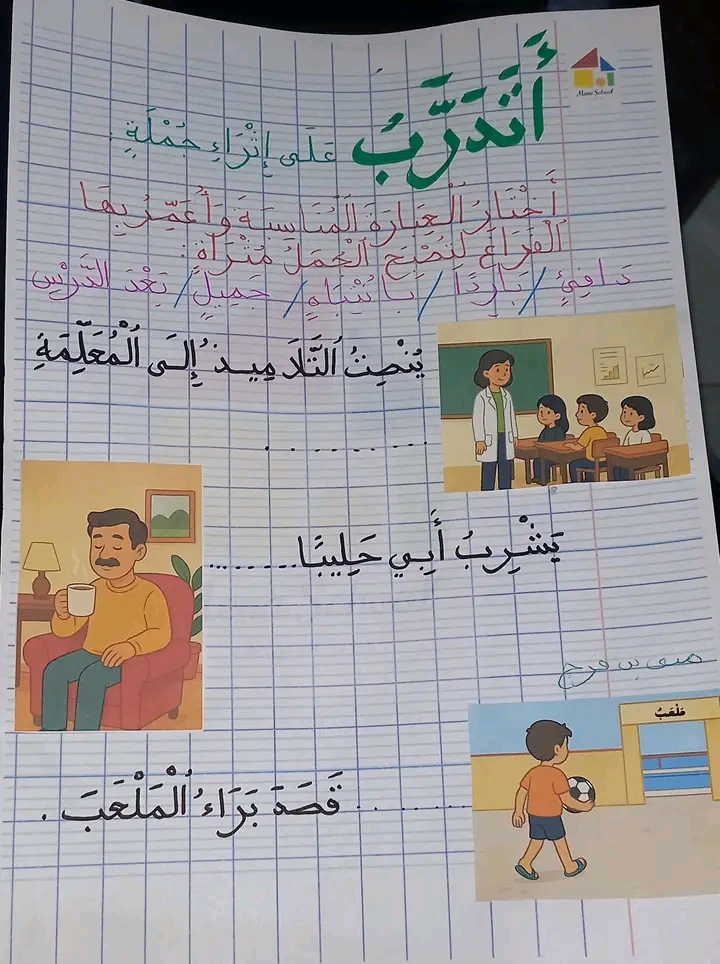 أَتَدَرَّبُ عَلَى إِثْرَاءِ جُمْلَةٍ.
Mams School
أَخْتَارُ الْعِبَارَةَ الْمُنَاسِبَةَ وَأُعَمِّرُ بِهَا
الْفَرَاغَ لِتُصْبِحَ الْجُمَلُ مُثْرَاةً:
دَافِئٍ / بَارِدًا / بِانْتِبَاهٍ / جَمِيلٍ / بَعْدَ الدَّرْسِ
يُنْصِتُ التَّلَامِيذُ إِلَى الْمُعَلِّمَةِ
..........
يَشْرِبُ أَبِي حَلِيبًا..........
منى بن فرج
مَلْعَبٌ
.......... قَصَدَ بَرَاءُ الْمَلْعَبَ.